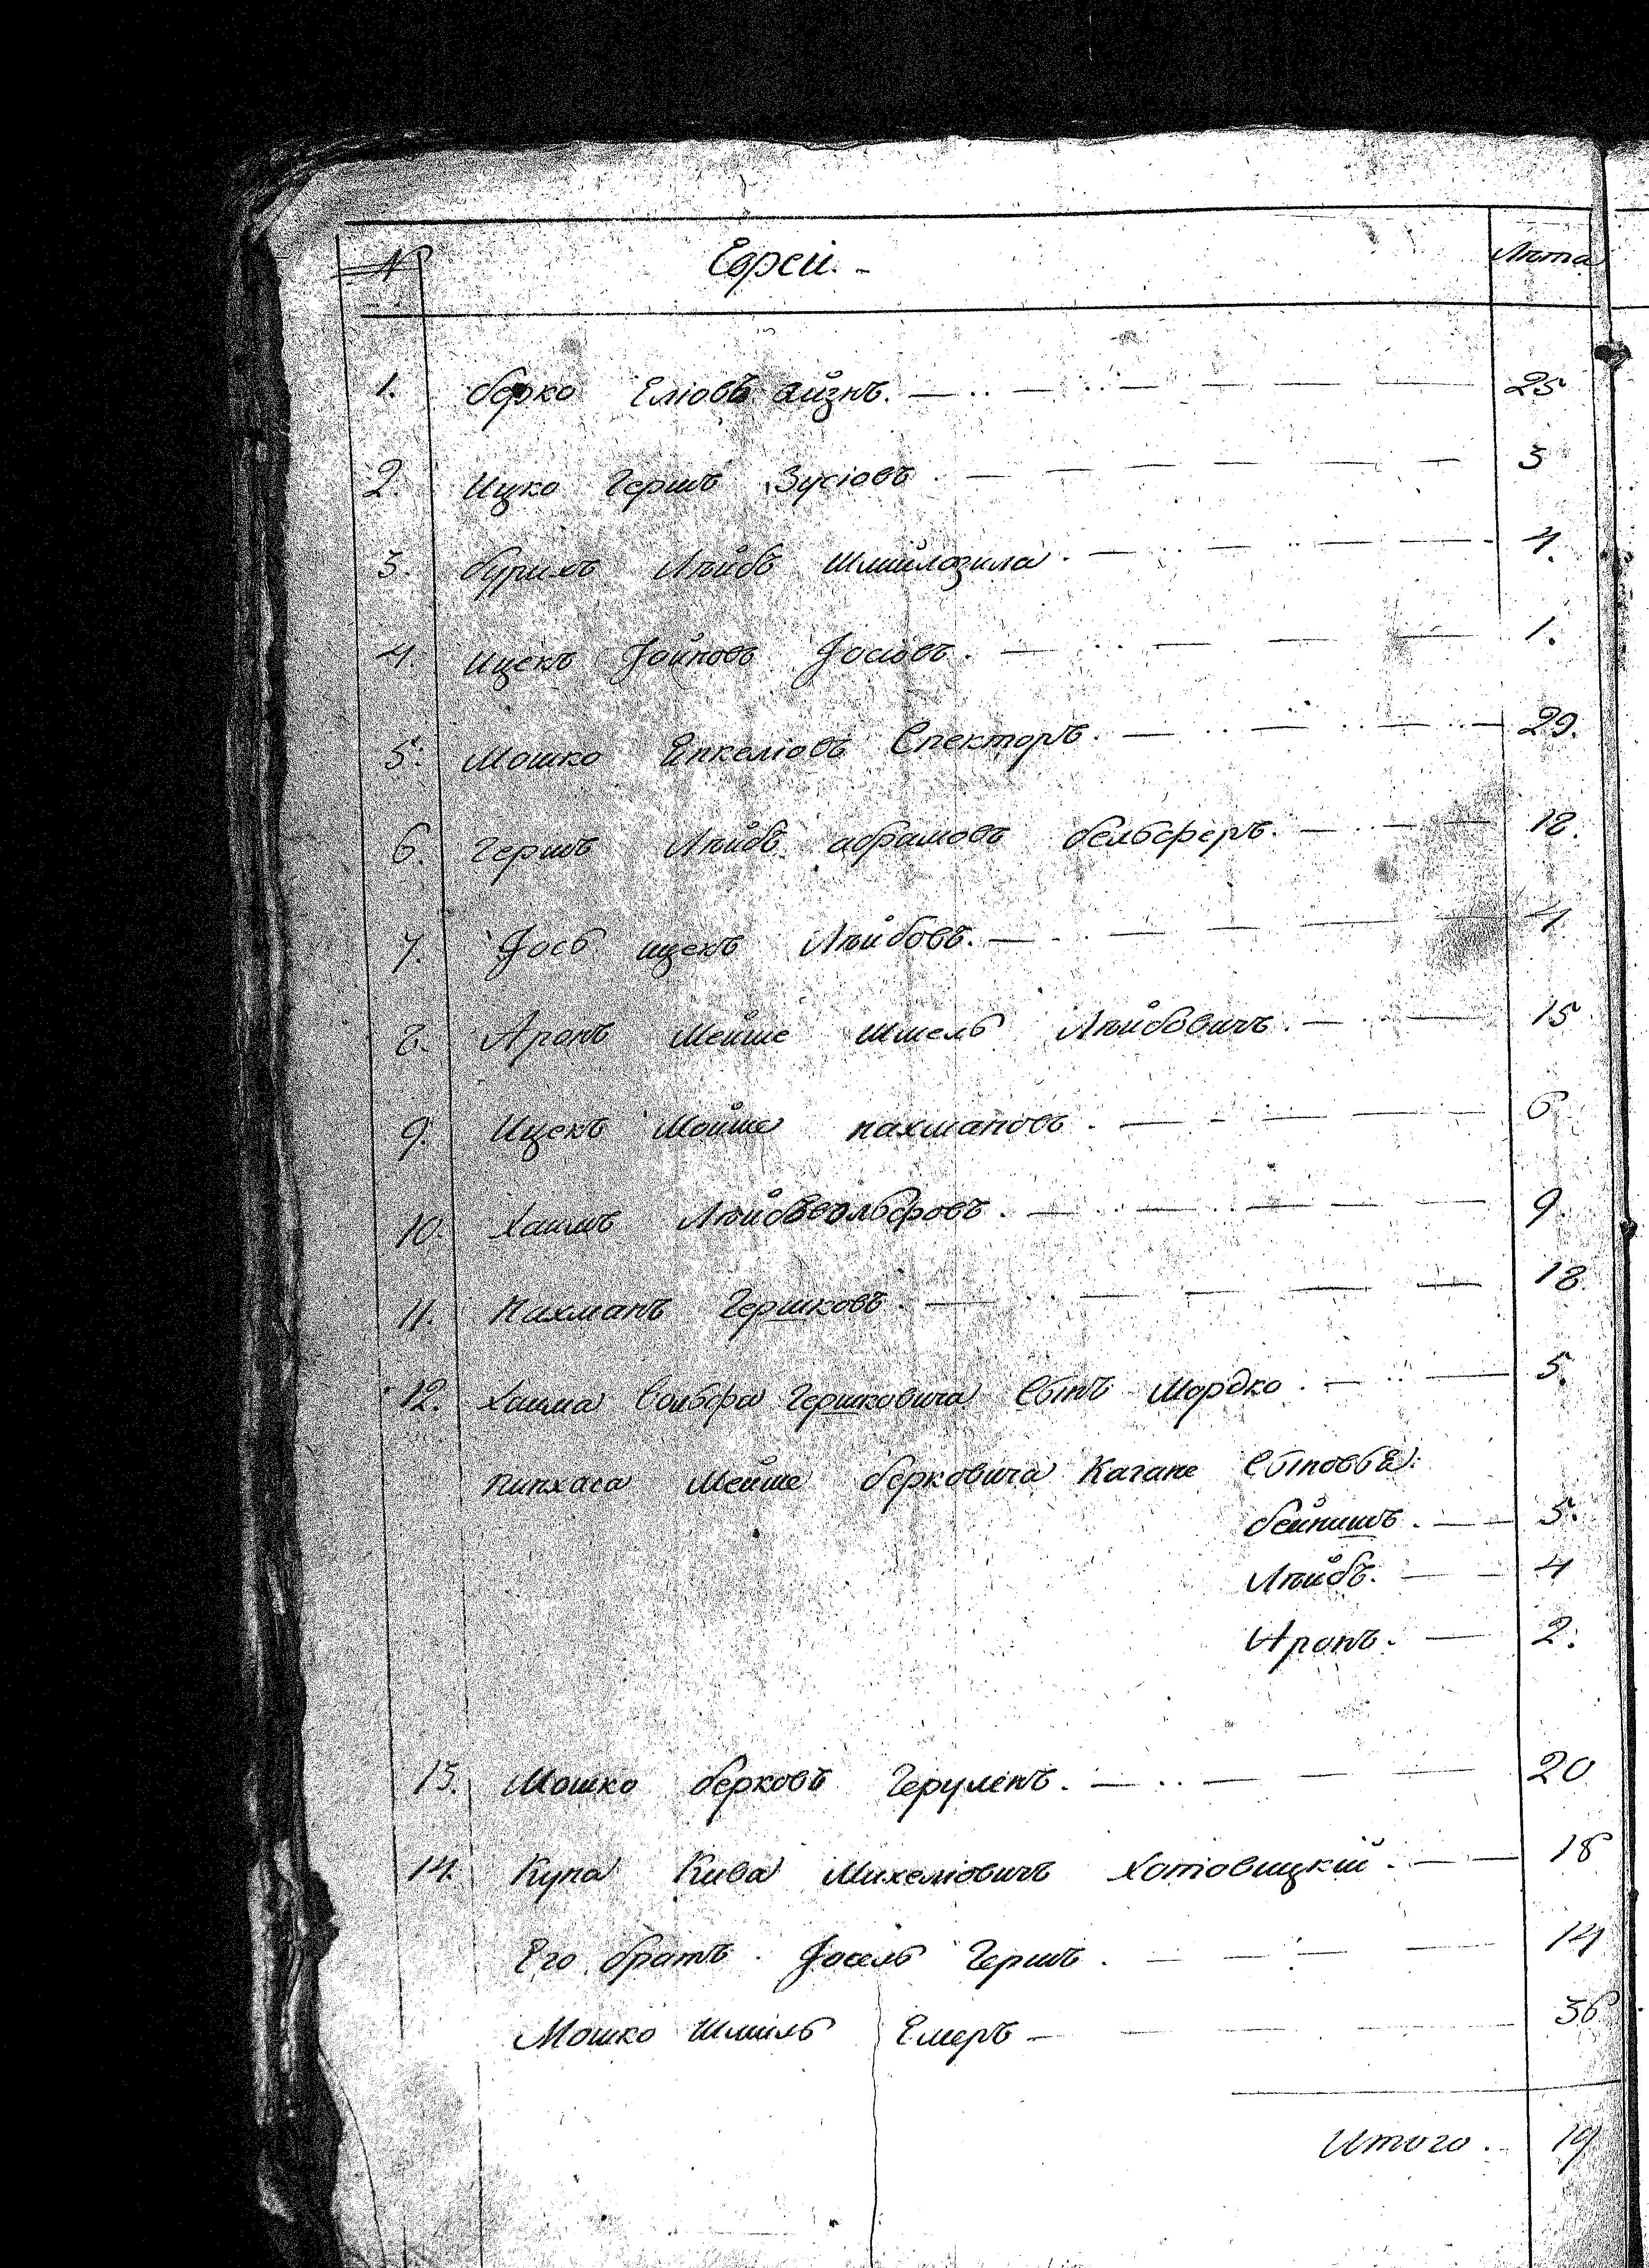 № Евреи. Лѣта
1. Берко Еліовъ Айзнъ. 25
2. Ицко Гершъ Зусіовъ. 3
3. Бурихъ Лѣйбъ 4.
4. Ицекъ Іойновъ Іосіовъ. 1.
5. Мошко Енкеліовъ Спекторъ. 29.
6. Гершъ Лѣйбъ Абрамовъ Бельферъ. 12.
7. Іось Ицекъ Лѣйбовъ. 4
8. Аронъ Мейше Шмель Лѣйбовичъ. 15
9. Ицекъ Мойше Нахмановъ. 6
10. Хаимъ Лѣйбъ Вольфовъ. 9.
11. Нахманъ Гершковъ. 18.
12. Хаима Вольфа Гершковича Сынъ Мордко. 5.
Пинхаса Мейше Берковича Кагане Сыновья:
Бейнишъ. 5.
Лѣйбъ. 4
Аронъ. 2.
13. Мошко Берковъ 20
14. Купа Кива Михеліовичъ Хотовицкій. 18
Его братъ Іосель Гершъ. 14
Мошко Шмиль Емеръ 36
Итого. 19